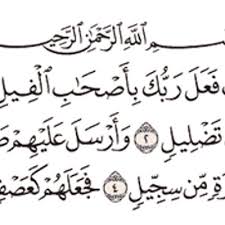 اللَّهِ الرَّحْمَٰنِ الرَّحِيمِ
فَعَلَ رَبُّكَ بِأَصْحَابِ الْفِيلِ
تَضْلِيلٍ ٢ وَأَرْسَلَ عَلَيْهِمْ
مِّن سِجِّيلٍ ٤ فَجَعَلَهُمْ كَعَصْفٍ